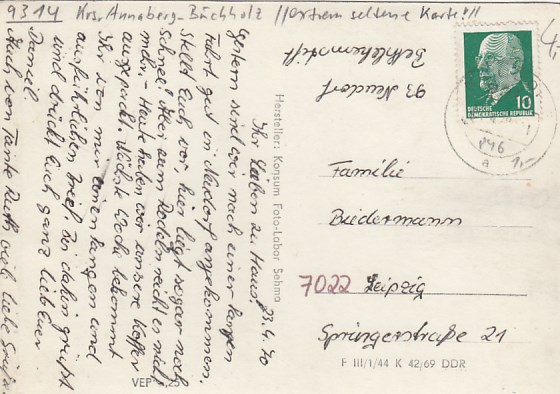 9314 Krs. Annaberg-Buchholz //extrem seltene Karte!//
4,-
Bethlehemstift
93 Neudorf
DEUTSCHE
DEMOKRATISCHE REPUBLIK 10
946
a
1,-
23.4.70
Ihr Lieben zu Haus!
Gestern sind wir nach einer langen
Fahrt gut in Neudorf angekommen.
Stellt Euch vor, hier liegt sogar noch
Schnee! Aber zum Rodeln reicht es nicht
mehr. - Heute haben wir unsere Koffer
ausgepackt. Nächste Woche bekommt
Ihr von mir einen langen und
ausführlichen Brief. Bis dahin grüßt
und drückt Euch ganz lieb Euer
Daniel.
Auch von Tante Ruth viele liebe Grüße.
Hersteller: Konsum Foto-Labor Sehma
Familie
Biedermann
7022 Leipzig
Springerstraße 21
F III/1/44 K 42/69 DDR
VEP -,25